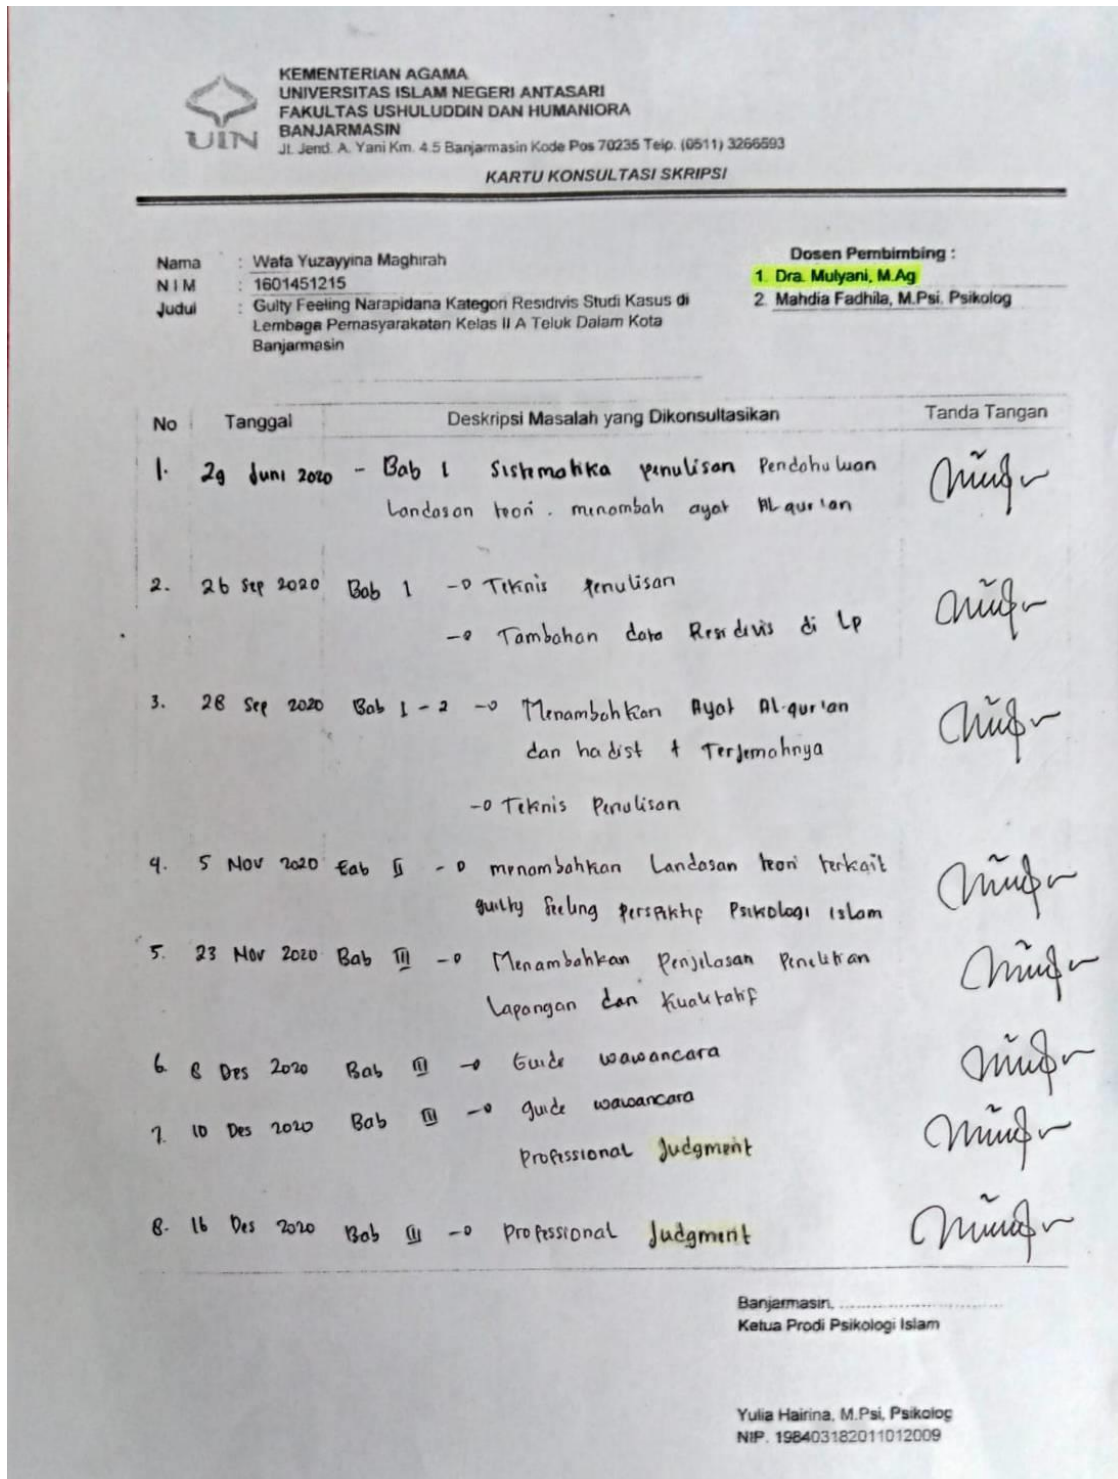 KEMENTERIAN AGAMA
UNIVERSITAS ISLAM NEGERI ANTASARI
FAKULTAS USHULUDDIN DAN HUMANIORA
BANJARMASIN
UIN
Jl. Jend. A. Yani Km. 4.5 Banjarmasin Kode Pos 70235 Telp. (0511) 3266593
KARTU KONSULTASI SKRIPSI
Nama : Wafa Yuzayyina Maghirah
NIM : 1601451215
Judul : Guilty Feeling Narapidana Kategori Residivis Studi Kasus di
Lembaga Pemasyarakatan Kelas II A Teluk Dalam Kota
Banjarmasin
Dosen Pembimbing :
1. Dra. Mulyani, M.Ag
2. Mahdia Fadhila, M.Psi. Psikolog
No Tanggal Deskripsi Masalah yang Dikonsultasikan Tanda Tangan
1. 29 Juni 2020 - Bab 1 Sistematika penulisan Pendahuluan
Landasan teori. menambah ayat Al-qur'an
2. 26 Sep 2020 Bab 1 → Teknis Penulisan
→ Tambahan data Residivis di LP
3. 28 Sep 2020 Bab 1 - 2 → Menambahkan Ayat Al-qur'an
dan hadist + Terjemahnya
→ Teknis Penulisan
4. 5 Nov 2020 Bab II → menambahkan Landasan teori terkait
guilty feeling perspektif Psikologi Islam
5. 23 Nov 2020 Bab III → Menambahkan Penjelasan Penelitian
Lapangan dan Kualitatif
6. 8 Des 2020 Bab III → Guide wawancara
7. 10 Des 2020 Bab III → guide wawancara
Professional Judgment
8. 16 Des 2020 Bab III → Professional Judgment
Banjarmasin, ..............................
Ketua Prodi Psikologi Islam
Yulia Hairina, M.Psi, Psikolog
NIP. 198403182011012009